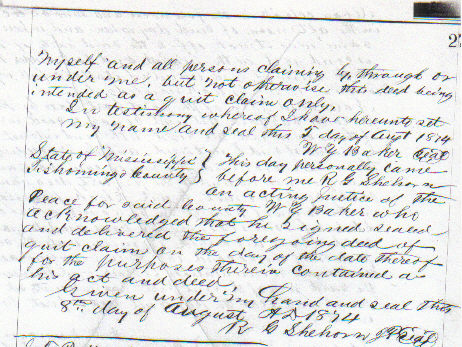 27
myself and all persons claiming by through or
under me, but not otherwise this deed being
intended as a quit claim only,
In testimony whereof I have hereunto set
my name and seal this 5 day of Augt 1874
W G Baker Seal
State of Mississippi } This day personally came
Tishomingo County } before me R G Shehorn
an acting justice of the
Peace for said county W G Baker who
acknowledged that he signed sealed
and delivered the foregoing deed of
quit claim on the day of the date thereof
for the purposes therein contained as
his act and deed,
Given under my hand and seal this
8th day of August A.D. 1874.
R G Shehorn JP Seal